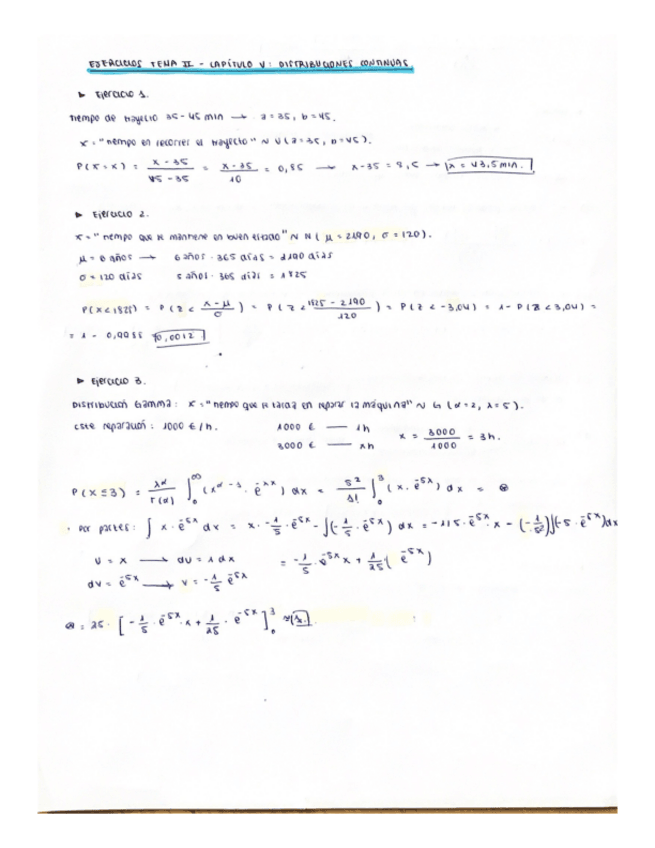 EJERCICIOS TEMA II - CAPÍTULO V: DISTRIBUCIONES CONTINUAS.
▶ Ejercicio 1.
Tiempo de trayecto 35-45 min → a=35, b=45.
X="Tiempo en recorrer el trayecto" ~ U(a=35, b=45).
P(X=x) = x-35 / 45-35 = x-35 / 10 = 0,85 → x-35 = 8,5 → x = 43,5 min.
▶ Ejercicio 2.
X="Tiempo que se mantiene en buen estado" ~ N(μ=2190, σ=120).
μ = 6 años → 6 años · 365 días = 2190 días
σ = 120 días 5 años · 365 días = 1825
P(X<1825) = P(Z < x-μ / σ) = P(Z < 1825-2190 / 120) = P(Z < -3,04) = 1 - P(Z < 3,04) =
= 1 - 0,9988 0,0012
▶ Ejercicio 3.
Distribución Gamma: X="Tiempo que se tarda en reparar la máquina" ~ G(α=2, λ=5).
Coste reparación: 1000 €/h. 1000 € — 1h
3000 € — xh x = 3000 / 1000 = 3h.
P(X≤3) = λ^α / Γ(α) ∫₀^∞ (x^α-1 · e^-λx) dx = 5² / 1! ∫₀³ (x · e^-5x) dx = ⊛
· Por partes: ∫ x · e^-5x dx = x · -1/5 · e^-5x - ∫(-1/5 · e^-5x) dx = -1/5 · e^-5x · x - (-1/5²)∫(-5 · e^-5x)dx
U = x → dU = 1 dx = -1/5 · e^-5x x + 1/25 (e^-5x)
dV = e^-5x → V = -1/5 e^-5x
⊛ = 25 · [-1/5 · e^-5x · x + 1/25 · e^-5x]₀³ ≈ 1.